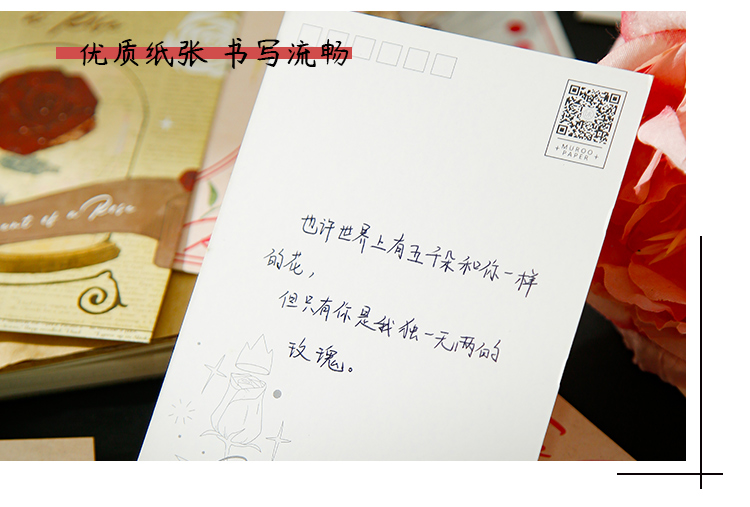 优质纸张 书写流畅
MUROO
PAPER
也许世界上有五千朵和你一样
的花，
但只有你是我独一无二的
玫瑰。
of a Rose